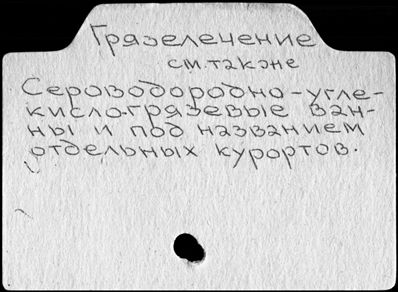 Грязелечение
см. также
Сероводородно-угле-
кисло-грязевые ван-
ны и под названием
отдельных курортов.